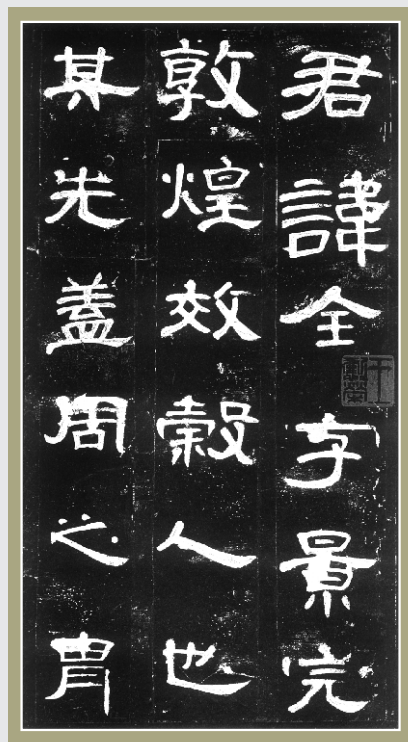 君諱全字景完
敦煌效穀人也
其先盖周之胄